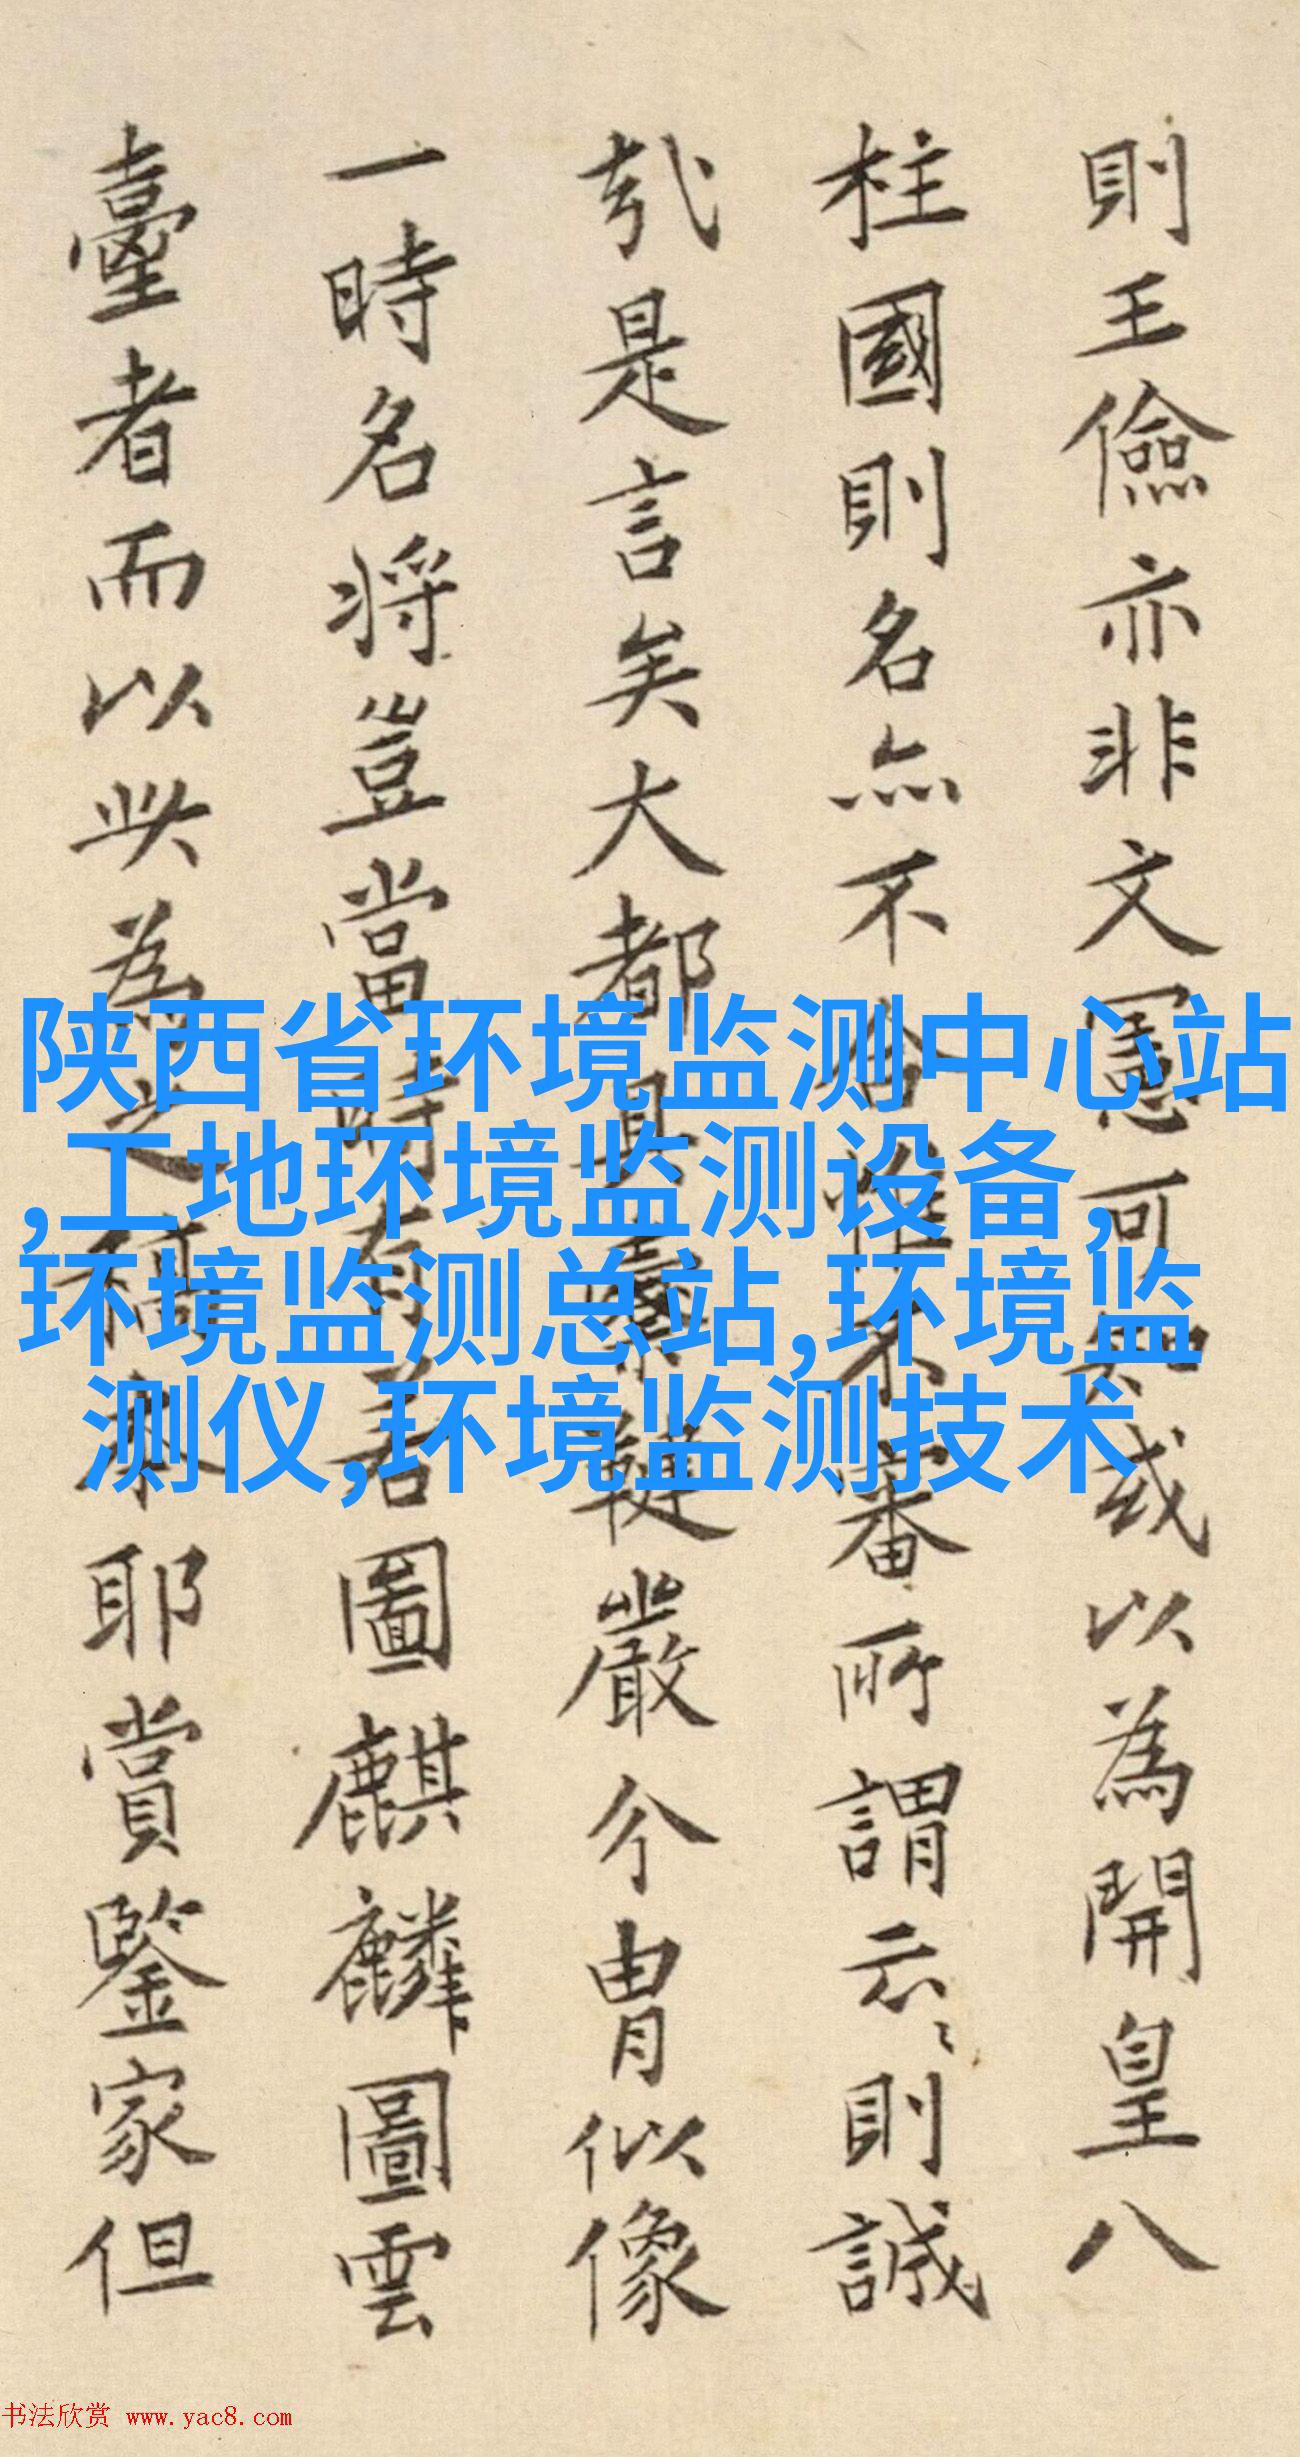 則王儉亦非文憲可知或以為開皇八
柱國則名亦不合惟不審所謂云云則誠
哉是言矣大都具橐鞬嚴介冑似像
一時名將豈當時有若圖麒麟圖雲
臺者而以此為之稱
耶賞鑒家但
陕西省环境监测中心站
,工地环境监测设备,
环境监测总站,环境监
测仪,环境监测技术
书法欣赏 www.yac8.com